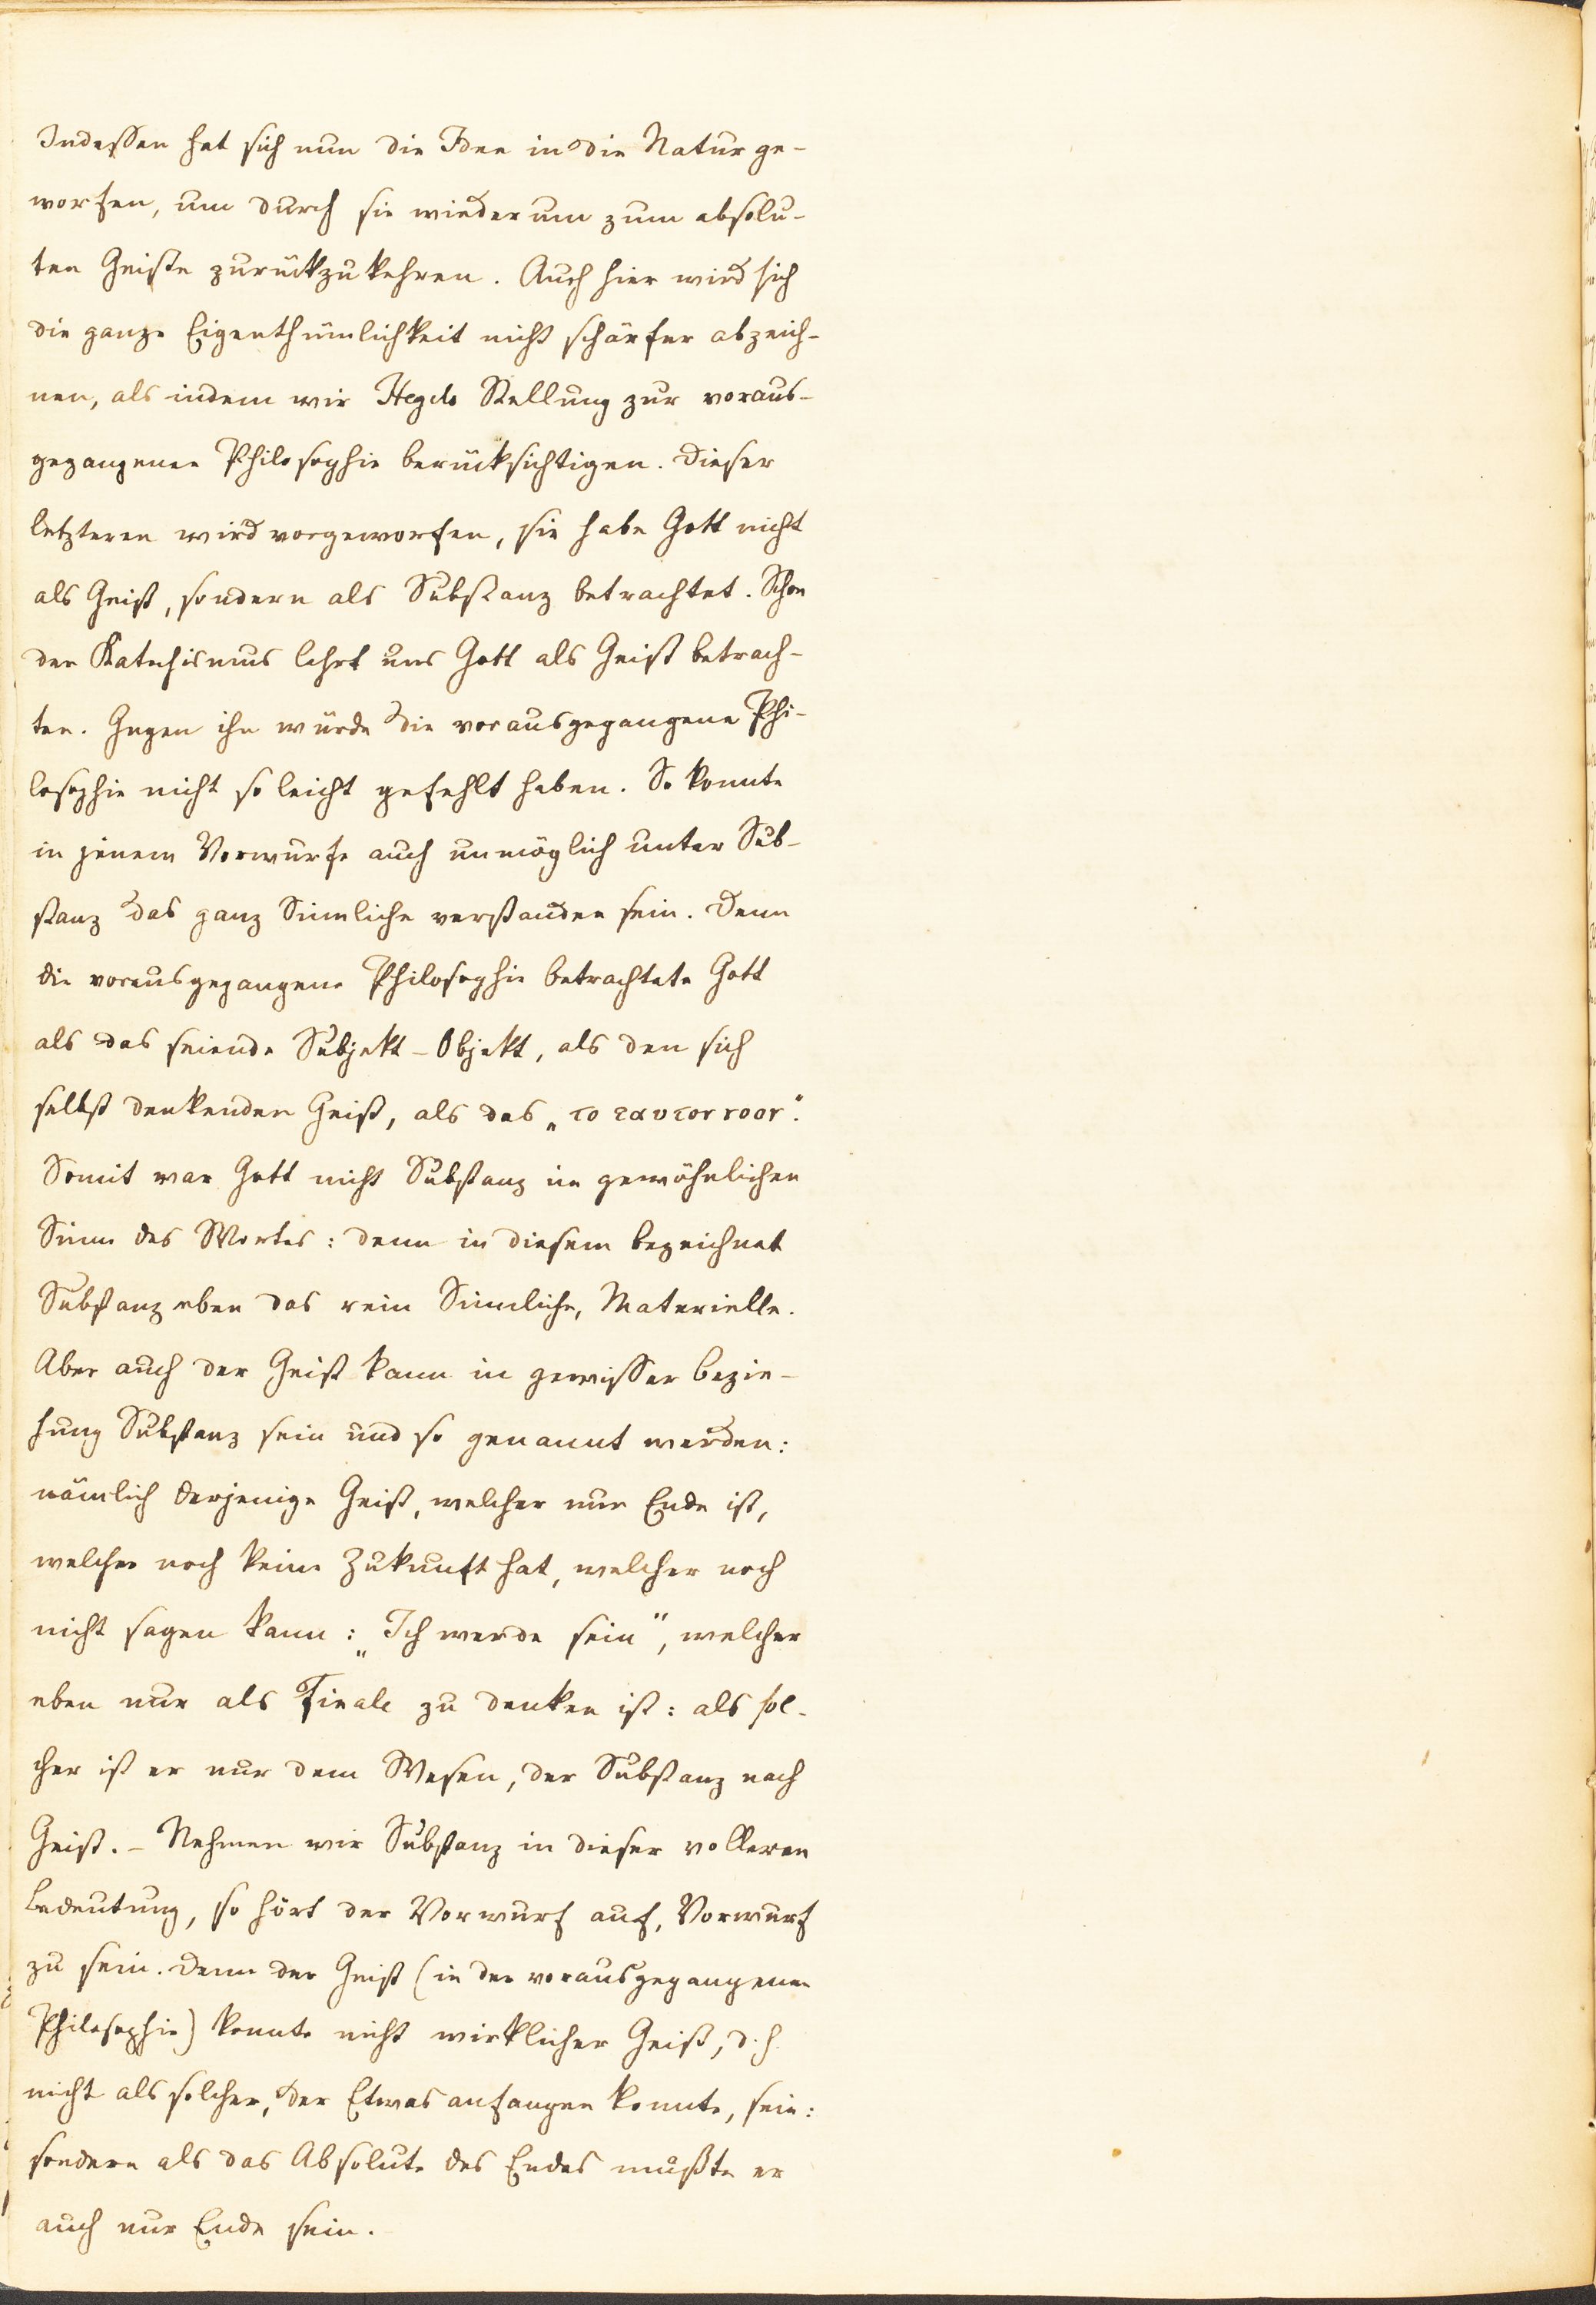 Indessen hat sich nun die Idee in die Natur ge-
worfen, um durch sie wiederum zum absolu-
ten Geiste zurückzukehren. Auch hier wird sich
die ganze Eigenthümlichkeit nicht schärfer abzeich-
nen, als indem wir Hegels Stellung zur voraus-
gegangenen Philosophie berücksichtigen. Dieser
letzteren wird vorgeworfen, sie habe Gott nicht
als Geist, sondern als Substanz betrachtet. Schon
der Katechismus lehrt uns Gott als Geist betrach-
ten. Gegen ihn würde die vorausgegangene Phi-
losophie nicht so leicht gefehlt haben. So konnte
in jenem Vorwurfe auch unmöglich unter Sub-
stanz das ganz Sinnliche verstanden sein. Denn
die vorausgegangene Philosophie betrachtete Gott
als das seiende Subjekt-Objekt, als den sich
selbst denkenden Geist, als das „το ταυτον νοον“.
Somit war Gott nicht Substanz im gewöhnlichen
Sinne des Wortes: denn in diesem bezeichnet
Substanz eben das rein Sinnliche, Materielle.
Aber auch der Geist kann in gewisser Bezie-
hung Substanz sein und so genannt werden:
nämlich derjenige Geist, welcher nur Ende ist,
welcher noch keine Zukunft hat, welcher noch
nicht sagen kann: „Ich werde sein“, welcher
eben nur als Finale zu denken ist: als sol-
cher ist er nur dem Wesen, der Substanz nach
Geist. – Nehmen wir Substanz in dieser volleren
Bedeutung, so hört der Vorwurf auf, Vorwurf
zu sein. Denn der Geist (in der vorausgegangenen
Philosophie) konnte nicht wirklicher Geist, d.h.
nicht als solcher, der Etwas anfangen konnte, sein:
sondern als das Absolute des Endes mußte er
auch nur Ende sein.